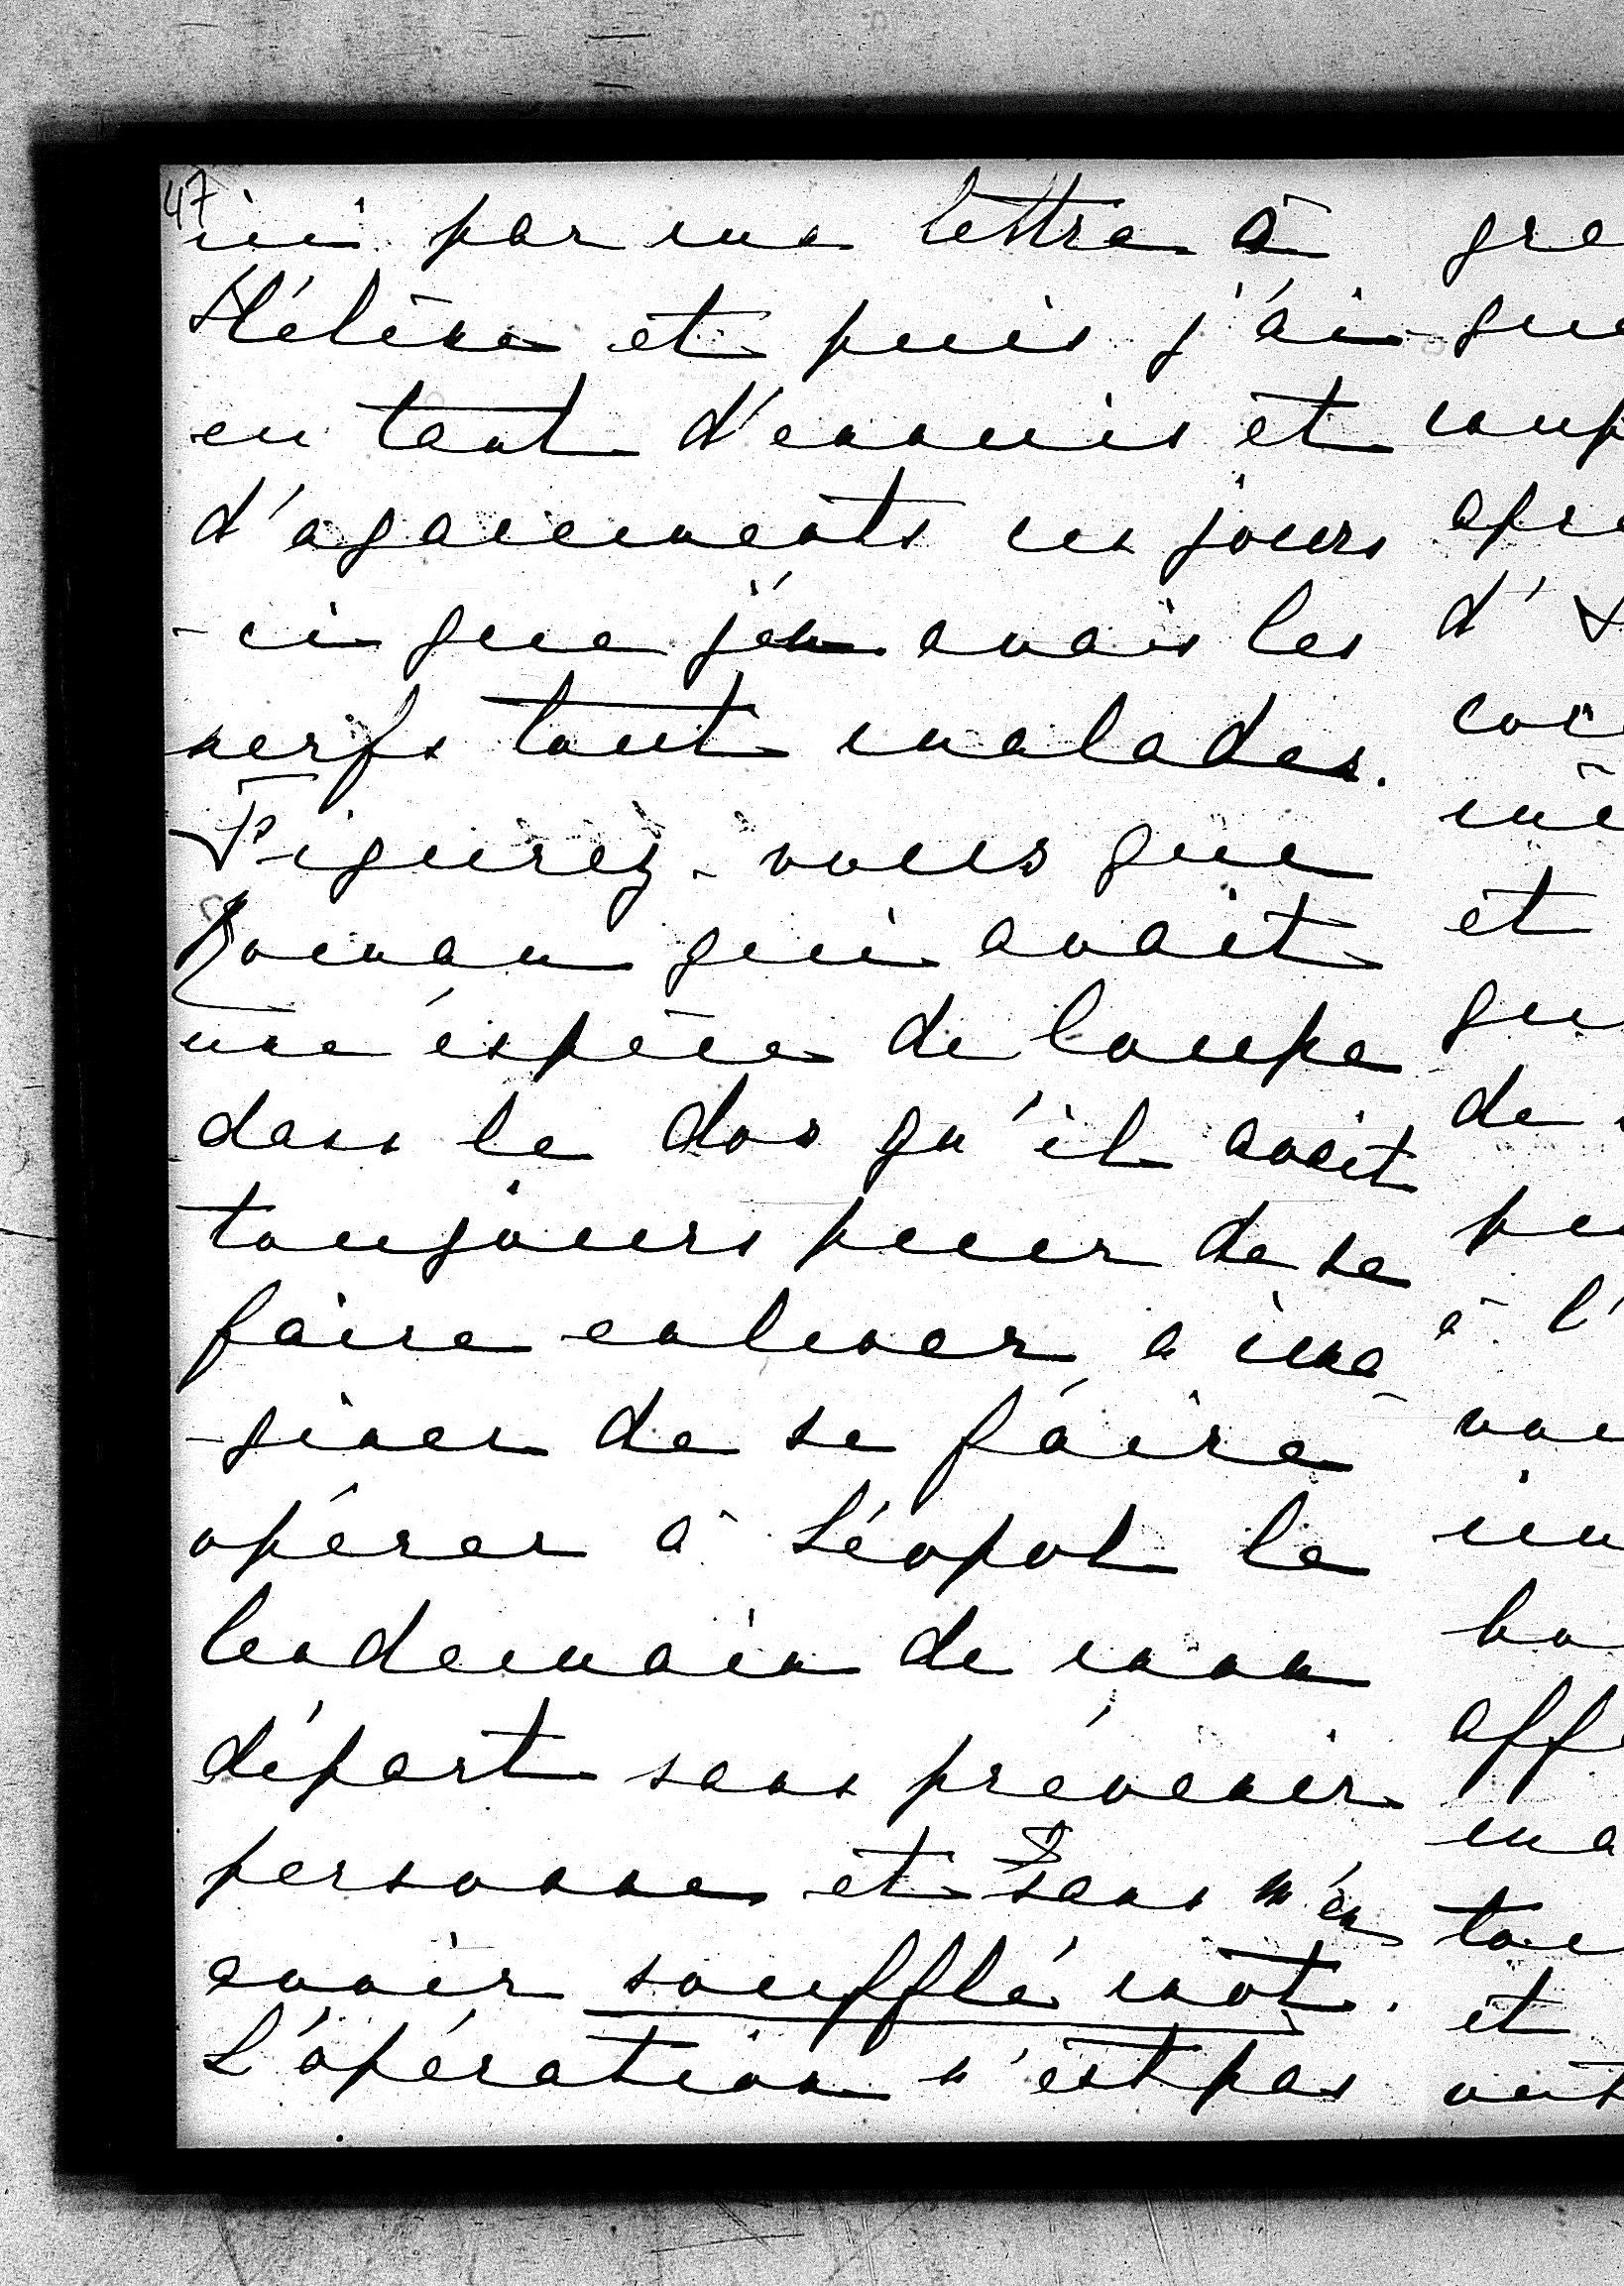 47
ici par une lettre à
Hélène et puis j'ai
eu tant d'ennuis et
d'agacements ces jours
-ci que j'en avais les
nerfs tout malades.
Figurez-vous que
Roman qui avait
une éspèce de loupe
dans le dos qu'il avait
toujours peur de se
faire enlever, a ima-
-giner de se faire
opérer à Léopol le
lendemain de mon
départ sans prévenir
personne et sans m'en
avoir soufflé mot.
L'opération n'est pas
gre
que
coup
apre
d'
coc
mê
et
qu
de
pu
à l'
vou
im
bo
aff
ma
tou
et